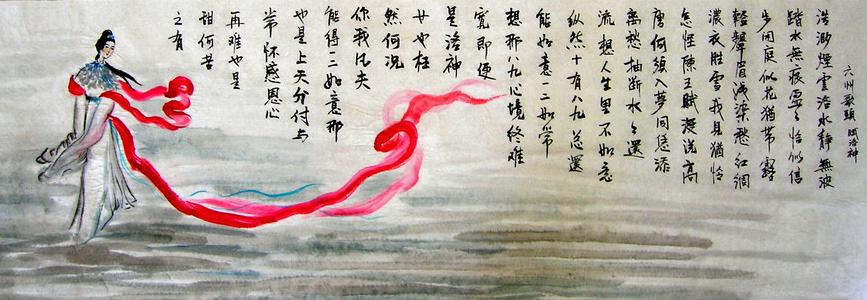 六州歌頭 賦洛神
浩渺煙雲洛水靜無波
踏水無痕恰似信
步闲庭似花猶帶露
輕顰眉淺染愁紅润
濃衣胜雪我見猶怜
怎怪陳王賦漫说高
唐何須入夢同添
离愁抽斷水水還
流想人生里不如意
纵然十有八九总還
能如意一二如常
想那八九心境终难
寬即便
是洛神
女也枉
然何况
你我凡夫
能得一二如意那
也是上天分付与
常怀感恩心
再难也是
甜何苦
之有